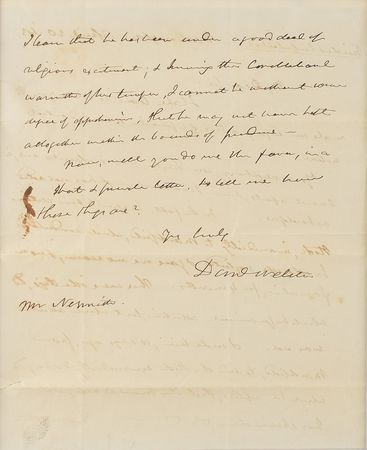 I learn that he has been under a good deal of
religious excitement; & knowing the
warmth of his temper, I cannot be without some
degree of apprehension, that he may not have kept
altogether within the bounds of prudence —
Now, will you do me the favor, in a
short & private letter, to tell me how
these things are?
Yrs truly
Danl Webster
Mr Nesmith.